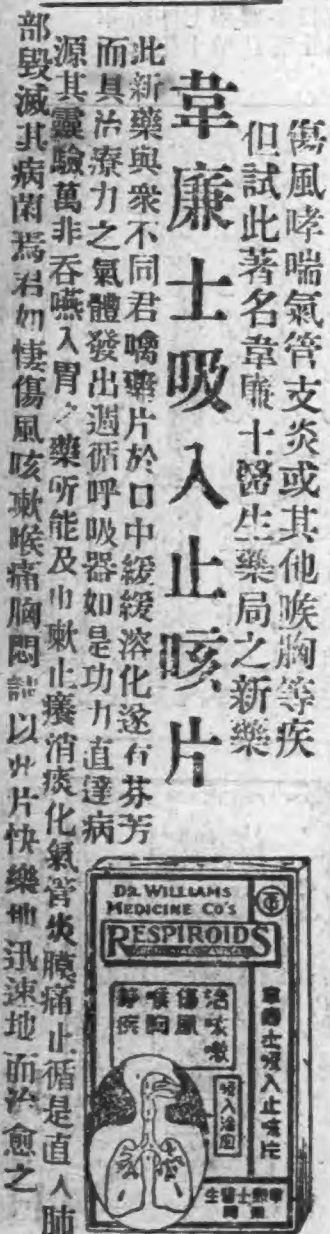 傷風哮喘氣管支炎或其他喉胸等疾
但試此著名韋廉士醫生藥局之新藥
韋廉士吸入止咳片
此新藥與衆不同君噙藥片於口中緩緩溶化遂有芬芳
而具治療力之氣體發出週循呼吸器如是功力直達病
源其靈驗萬非吞嚥入胃之藥所能及巾嗽止癢消痰化氣管炎膜痛止循是直入肺
部毀滅其病菌焉君如悽傷風咳嗽喉痛胸悶請以此片快樂地迅速地而治愈之
DR. WILLIAMS
MEDICINE CO'S
RESPIROIDS
治咳嗽
傷風
喉胸
等疾
吸入治愈
韋廉士吸入止咳片
韋廉士醫生
藥局